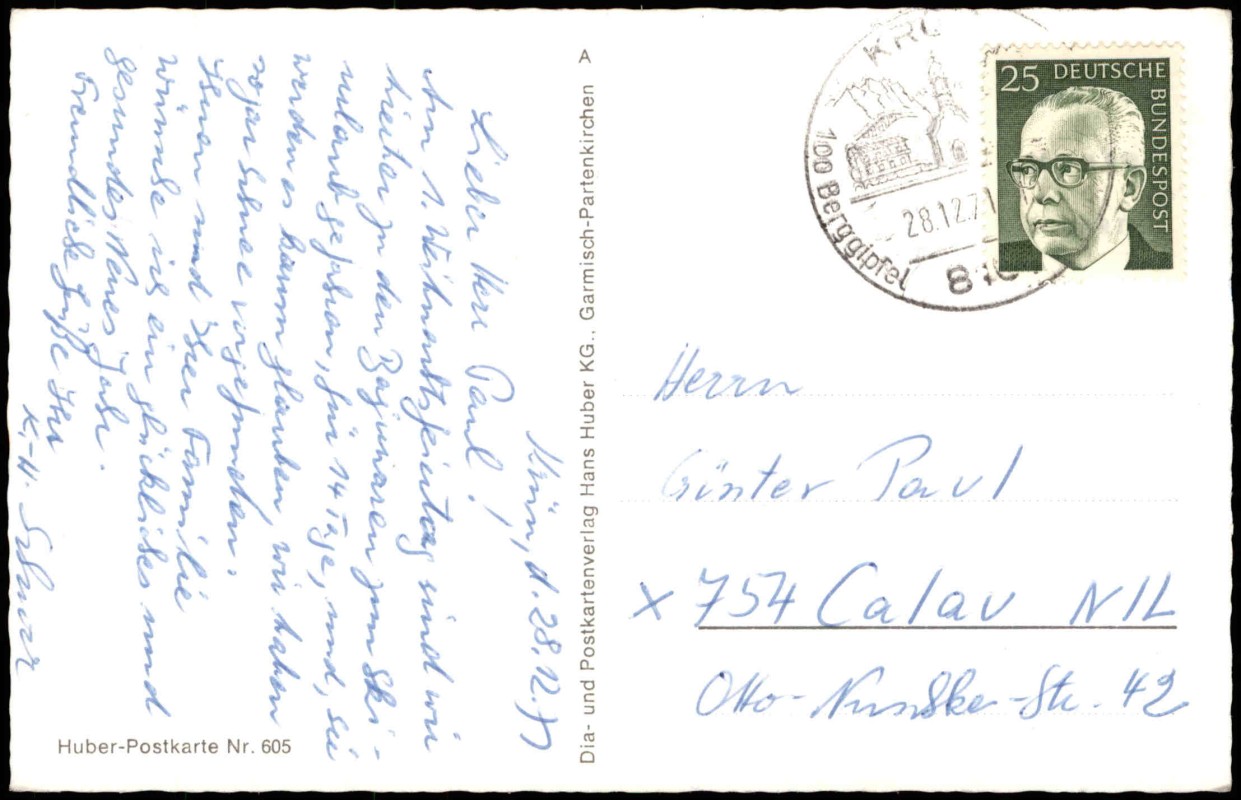 Krün, d. 28.12.71
Lieber Herr Paul!
Am 1. Weihnachtsfeiertag sind wir
hierher zu den Bajuwaren zum Ski-
urlaub gefahren, für 14 Tage, und, Sie
werden es kaum glauben, wir haben
sogar Schnee vorgefunden.
Ihnen und Ihrer Familie
wünsche ich ein glückliches und
gesundes Neues Jahr.
Freundliche Grüße Ihr
K.-H.
Huber-Postkarte Nr. 605
A
Dia- und Postkartenverlag Hans Huber KG., Garmisch-Partenkirchen
KRÜ
100 Berggipfel
28.12.71
810
25 DEUTSCHE
BUNDESPOST
Herrn
Günter Paul
x 754 Calau N/L
Otto-Nuschke-Str. 42